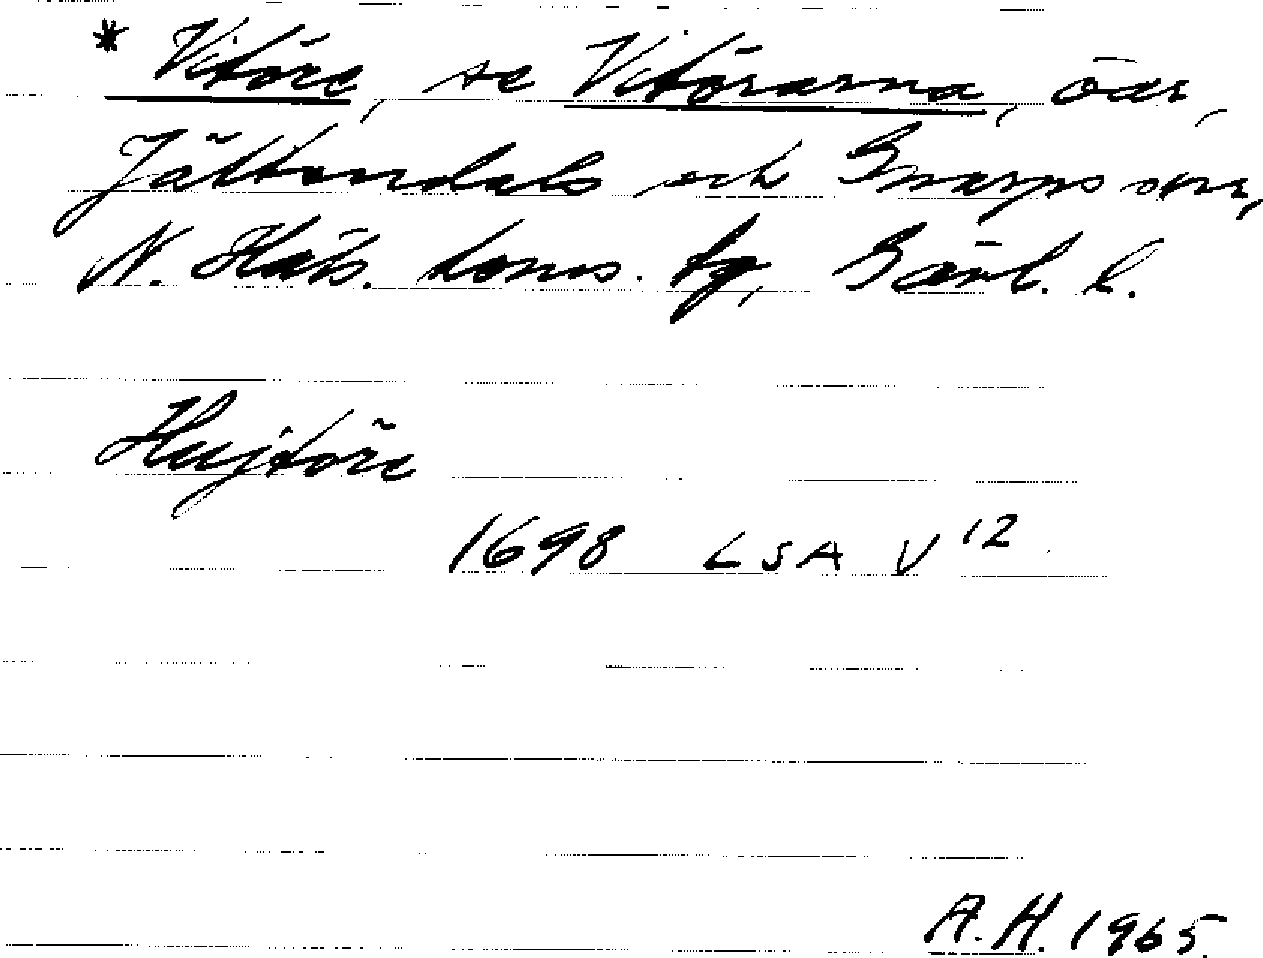 * Vitöre, se Vitörarna, öar,
Jättendals och Gnarps snr,
N. Häls. doms. tg, Gävl. l.
Huijtöre
1698 LSA V 12
A.H. 1965.